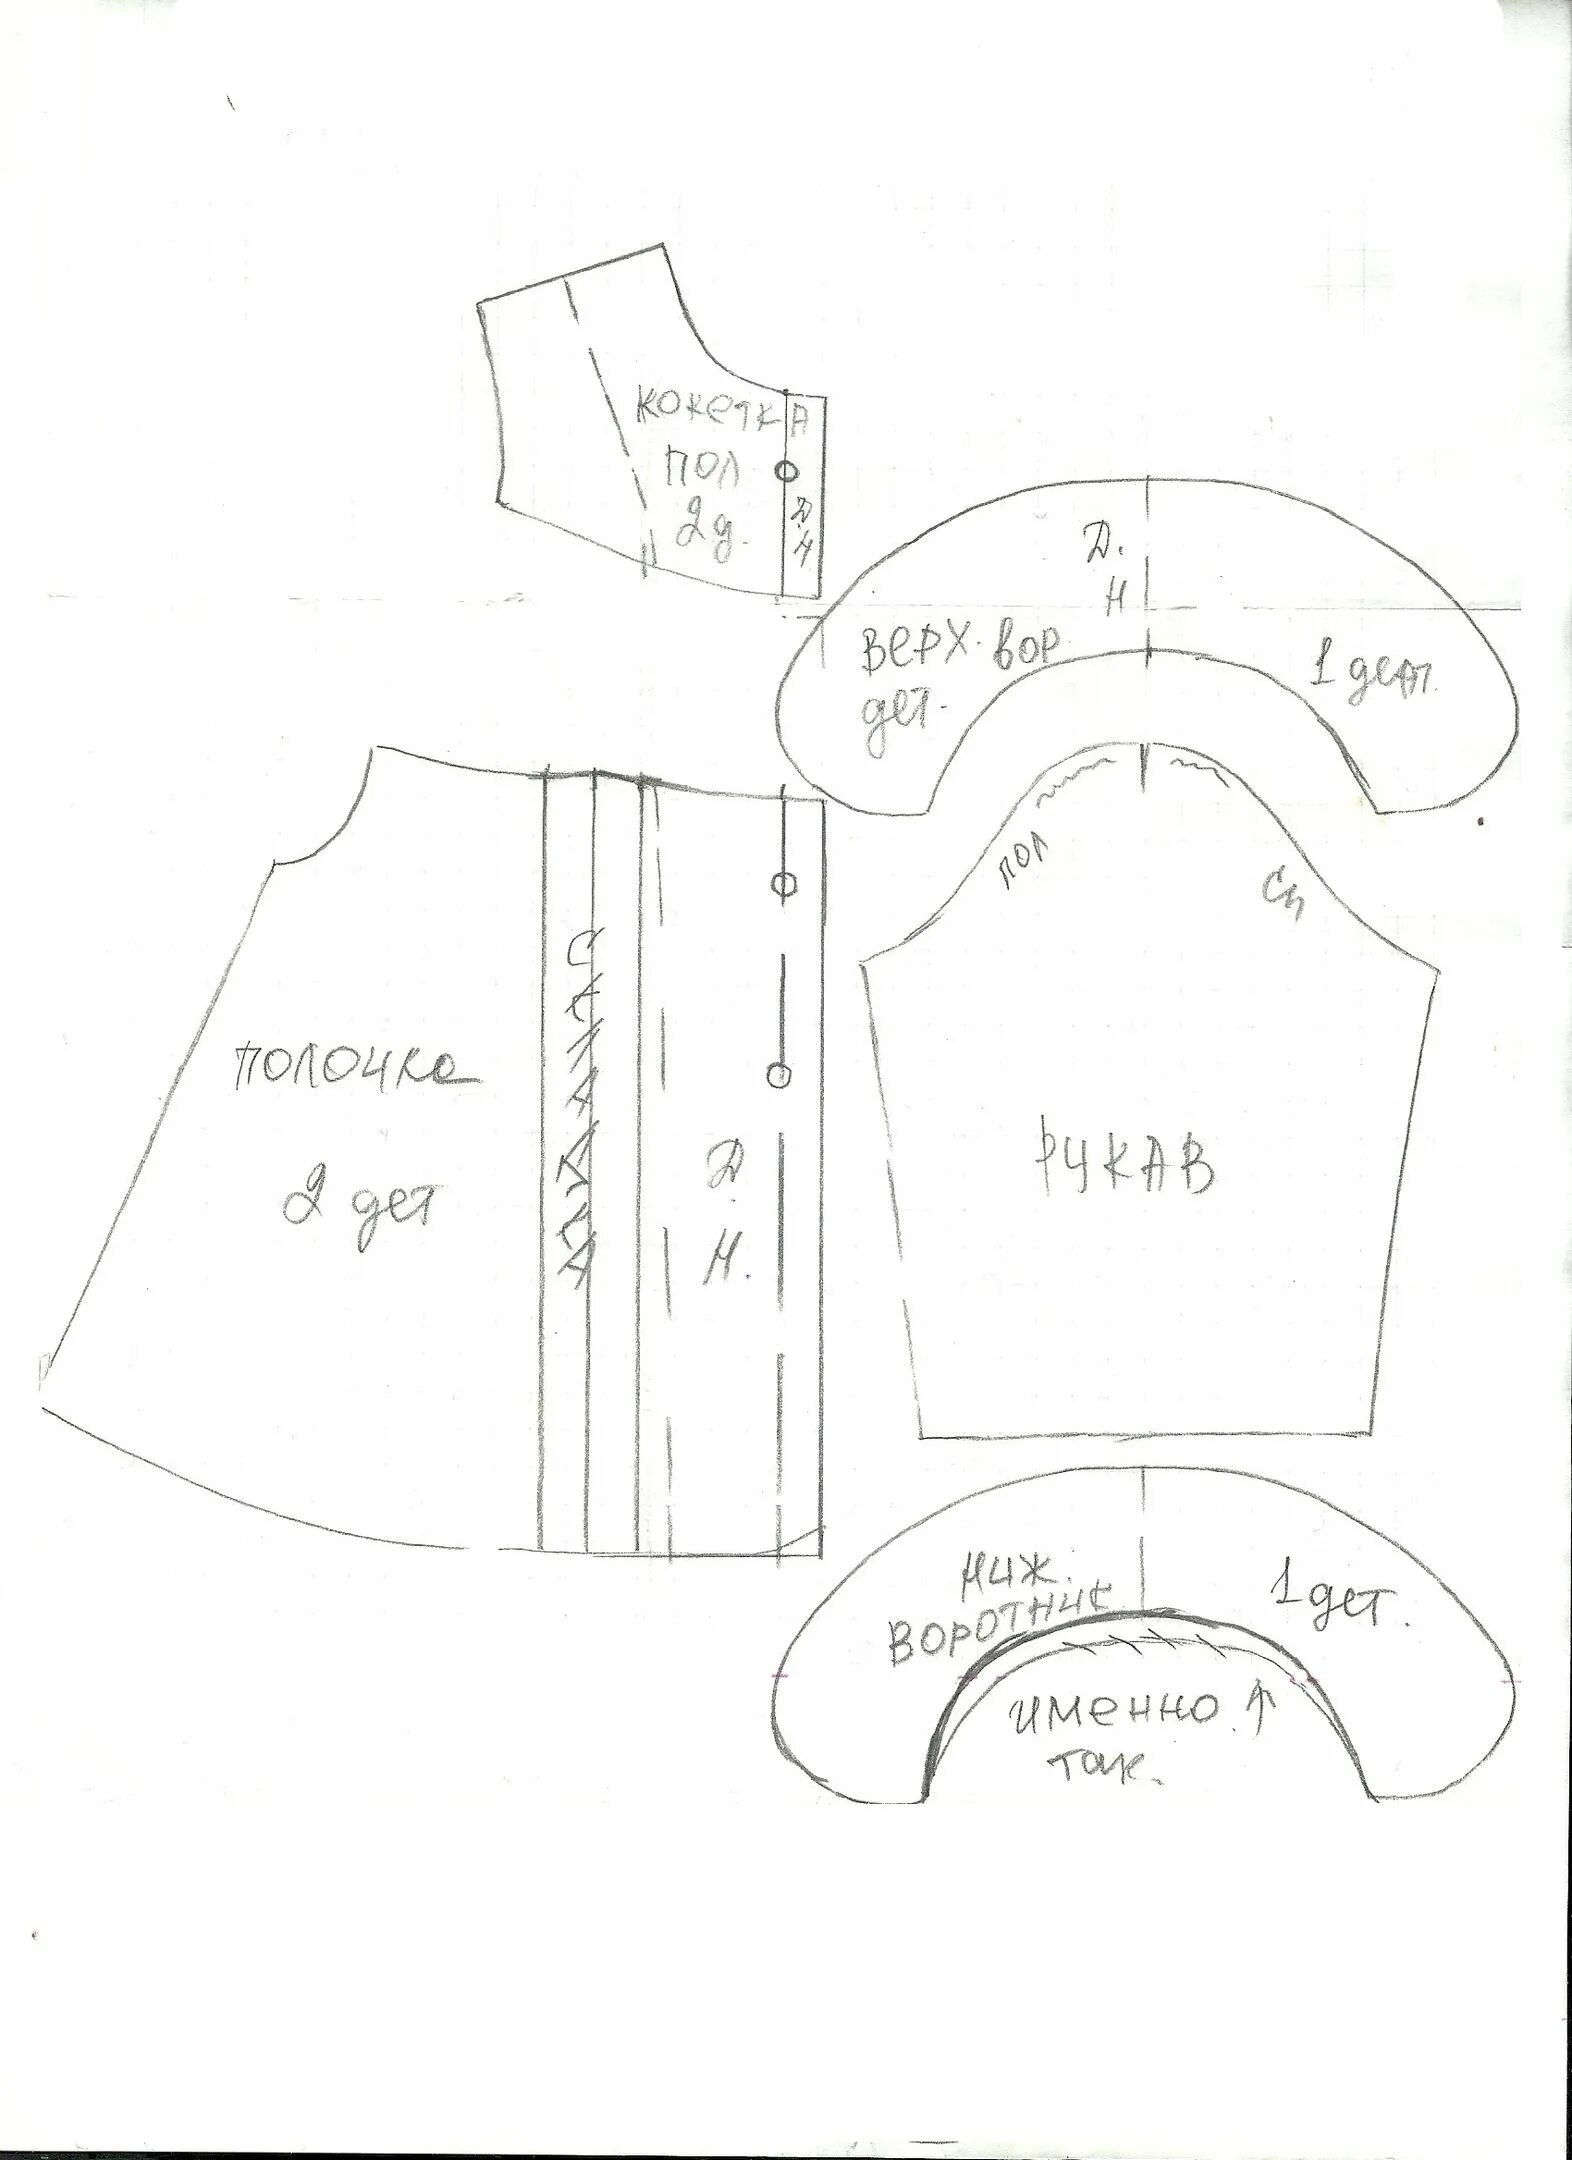 кокетка
пол
2 д.
Д.
Н
Д.
Н
Верх. вор
дет.
1 дет.
пол
сп
полочка
2 дет
складка
Д.
Н.
РУКАВ
ниж.
воротник
1 дет.
именно ↑
так.